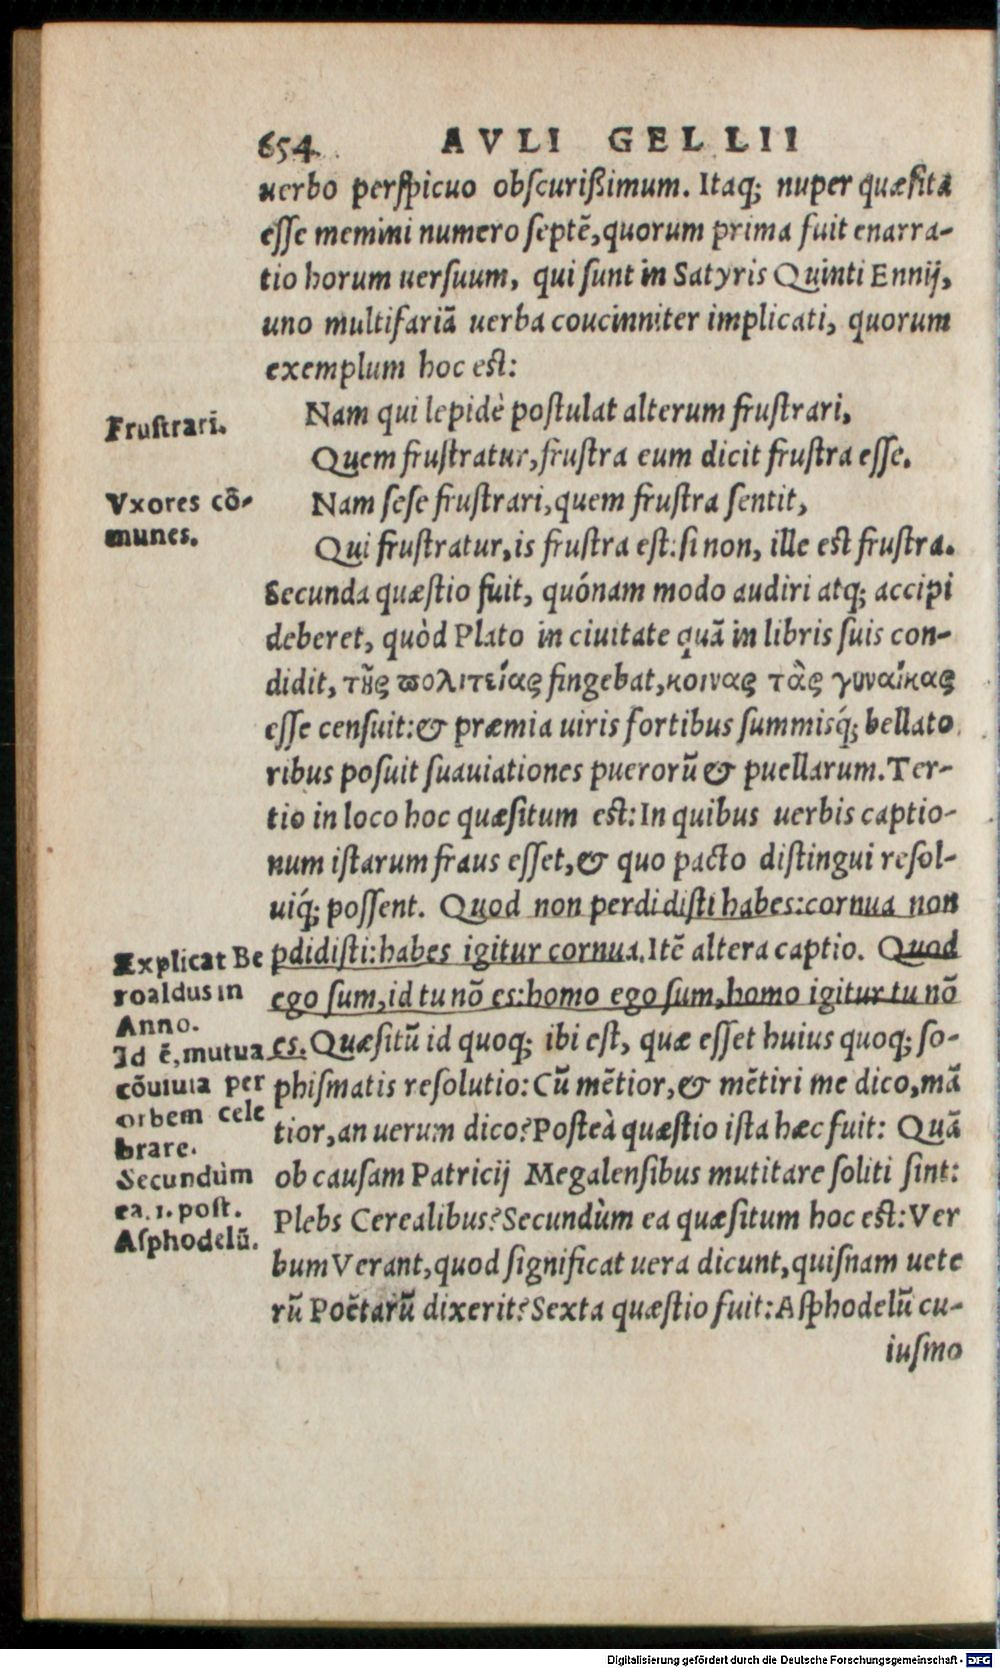 654. AVLI GELLII
uerbo perſpicuo obſcurißimum. Itaq; nuper quæſita
eſſe memini numero ſeptē, quorum prima fuit enarra-
tio horum uerſuum, qui ſunt in Satyris Quinti Ennij,
uno multifariā uerba coucinniter implicati, quorum
exemplum hoc eſt:
Fruſtrari.
Nam qui lepidè poſtulat alterum fruſtrari,
Quem fruſtratur, fruſtra eum dicit fruſtra eſſe.
Vxores cō-
munes.
Nam ſeſe fruſtrari, quem fruſtra ſentit,
Qui fruſtratur, is fruſtra eſt: ſi non, ille eſt fruſtra.
Secunda quæſtio fuit, quónam modo audiri atq; accipi
deberet, quòd Plato in ciuitate quā in libris ſuis con-
didit, τῆς πολιτείας fingebat, κοινας τὰς γυναῖκας
eſſe cenſuit: & præmia uiris fortibus ſummisq́; bellato
ribus poſuit ſuauiationes puerorū & puellarum. Ter-
tio in loco hoc quæſitum eſt: In quibus uerbis captio-
num iſtarum fraus eſſet, & quo pacto diſtingui reſol-
uiq́; poſſent. Quod non perdidiſti habes: cornua non
pdidiſti: habes igitur cornua. Itē altera captio. Quod
ego ſum, id tu nō es: homo ego ſum, homo igitur tu nō
es. Quæſitū id quoq; ibi eſt, quæ eſſet huius quoq; ſo-
phiſmatis reſolutio: Cū mētior, & mētiri me dico, mā
tior, an uerum dico? Poſteà quæſtio iſta hæc fuit: Quā
ob cauſam Patricij Megalenſibus mutitare ſoliti ſint:
Plebs Cerealibus? Secundùm ea quæſitum hoc eſt: Ver
bum Verant, quod ſignificat uera dicunt, quiſnam uete
rū Poētarū dixerit? Sexta quæſtio fuit: Aſphodelū cu-
iuſmo
Explicat Be
roaldus in
Anno.
Id ē, mutua
cōuiuia per
orbem cele
brare.
Secundùm
ea. 1. poſt.
Aſphodelū.
Digitalisierung gefördert durch die Deutsche Forschungsgemeinschaft - DFG